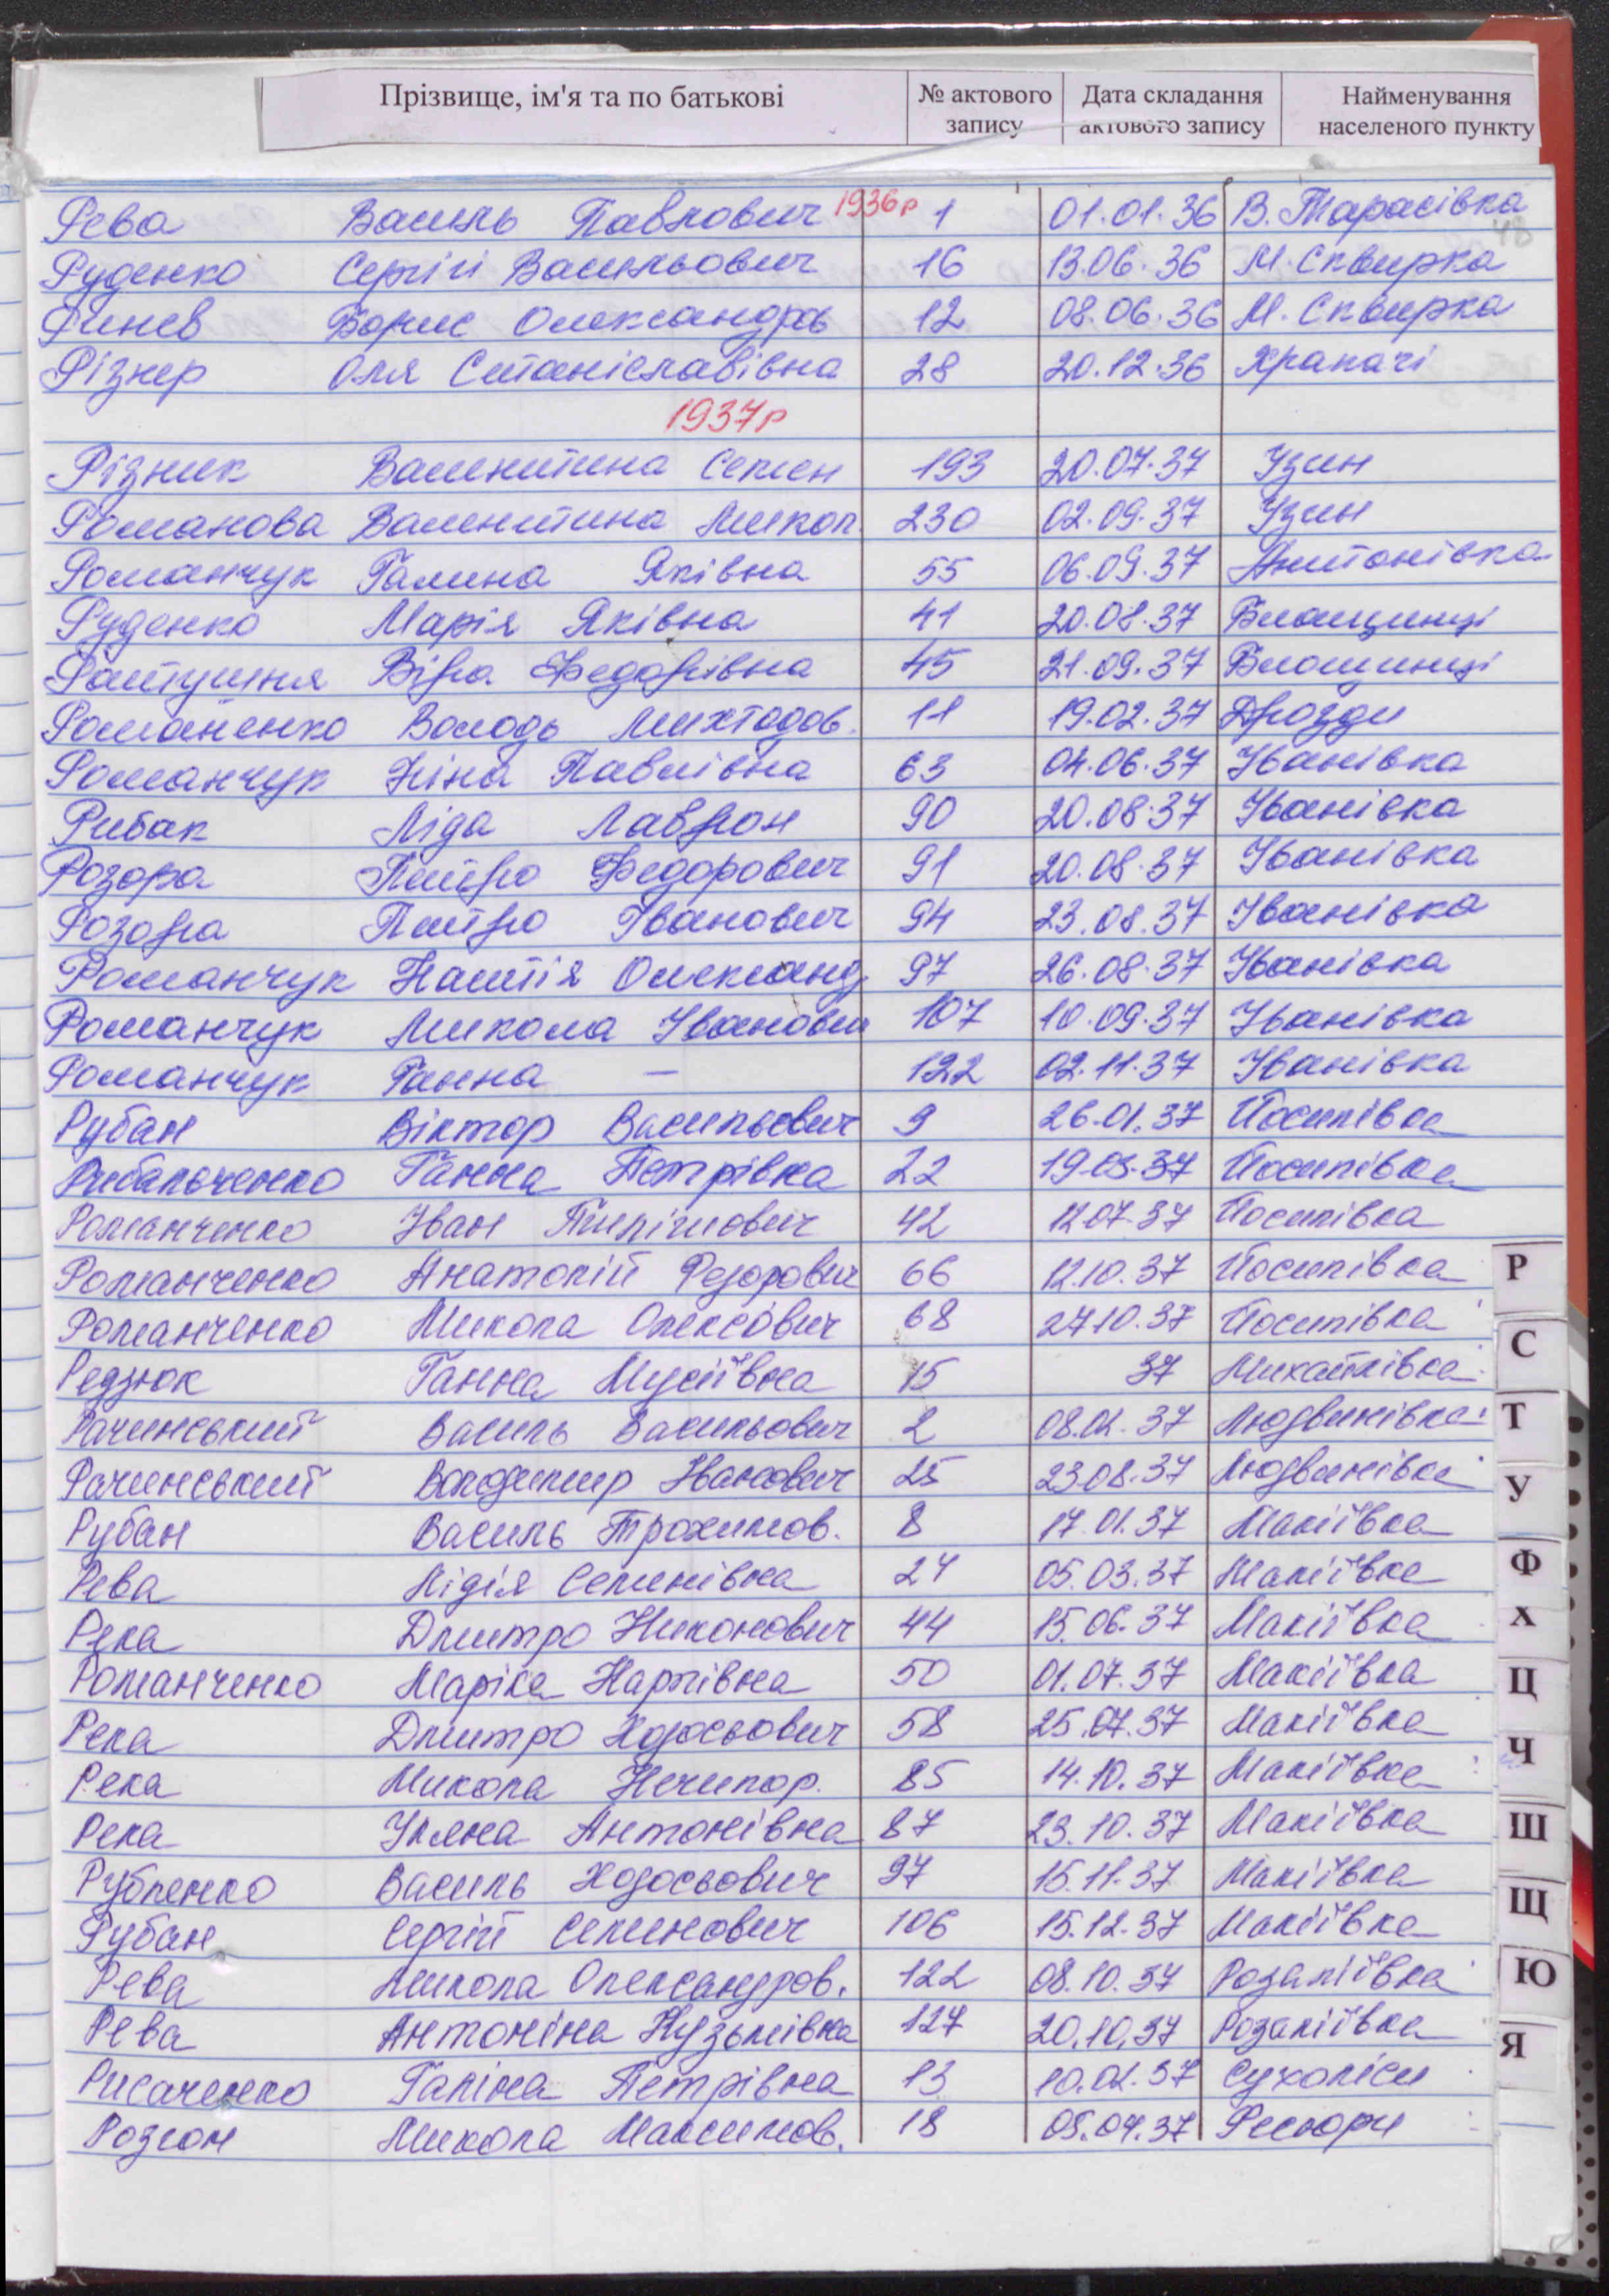 Прізвище, ім'я та по батькові № актового запису Дата складання актового запису Найменування населеного пункту
Рева Василь Павлович 1936р 1 01.01.36 В. Тарасівка
48
Руденко Сергій Васильович 16 13.06.36 М. Сквирка
Финєв Борис Олександрв 12 08.06.36 М. Сквирка
Різнер Оля Станіславівна 28 20.12.36 Храпачі
1937р
Різник Валентина Семен 193 20.07.37 Узин
Романова Валентина Микол. 230 02.09.37 Узин
Романчук Галина Яківна 55 06.09.37 Антонівка
Руденко Марія Яківна 41 20.08.37 Блощинці
Ратушня Віра Федорівна 45 21.09.37 Блощинці
Романенко Володь 11 19.02.37 Дрозди
Романчук Ніна Павлівна 63 04.06.37 Іванівка
Рибак Ліда Лаврон 90 20.08.37 Іванівка
Розора Питро Федорович 91 20.08.37 Іванівка
Розора Питро Іванович 94 23.08.37 Іванівка
Романчук Настія Олександ 97 26.08.37 Іванівка
Романчук Микола Іванович 107 10.09.37 Іванівка
Романчук Ганна — 122 02.11.37 Іванівка
Рубан Віктор Васильович 9 26.01.37 Йосипівка
Рибальченко Ганна Петрівна 22 19.03.37 Йосипівка
Романченко Іван Пилипович 42 12.07.37 Йосипівка
Романченко Анатолій Федорович 66 12.10.37 Йосипівка
Романченко Микола Олексович 68 27.10.37 Йосипівка
Редзюк Ганна Мусіївна 15 37 Михайлівка
Рачинський Василь Васильович 2 08.01.37 Людвинівка
Рачинський Володимир Іванович 25 23.08.37 Людвинівка
Рубан Василь Трохимов. 8 17.01.37 Макіївка
Рева Лідія Семенівна 24 05.03.37 Макіївка
Река Дмитро Никонович 44 15.06.37 Макіївка
Романченко Маріка Карпівна 50 01.07.37 Макіївка
Река Дмитро Ходосьович 58 25.07.37 Макіївка
Река Микола Нечипор. 85 14.10.37 Макіївка
Река Уляна Антонівна 87 23.10.37 Макіївка
Рубленко Василь Ходосьович 97 15.11.37 Макіївка
Рубан Сергій Семенович 106 15.12.37 Макіївка
Рева Микола Олександров. 122 08.10.37 Розаліївка
Рева Антоніна Кузьмівна 127 20.10.37 Розаліївка
Рисаченко Галіна Петрівна 13 10.02.37 Сухоліси
Розгон Микола Максимов. 18 05.04.37 Фесюри
Р
С
Т
У
Ф
Х
Ц
Ч
Ш
Щ
Ю
Я